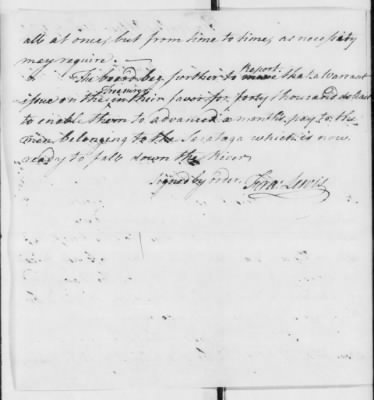 all at once, but from time to time, as necessity
may require. —
The board beg further to move Report that a Warrant
issue on the Treasury in their favor for forty thousand dollars
to enable them to advance a months pay to the
men belonging to the Saratoga which is now
ready to fall down the River
Signed by order. Fra.s Lewis